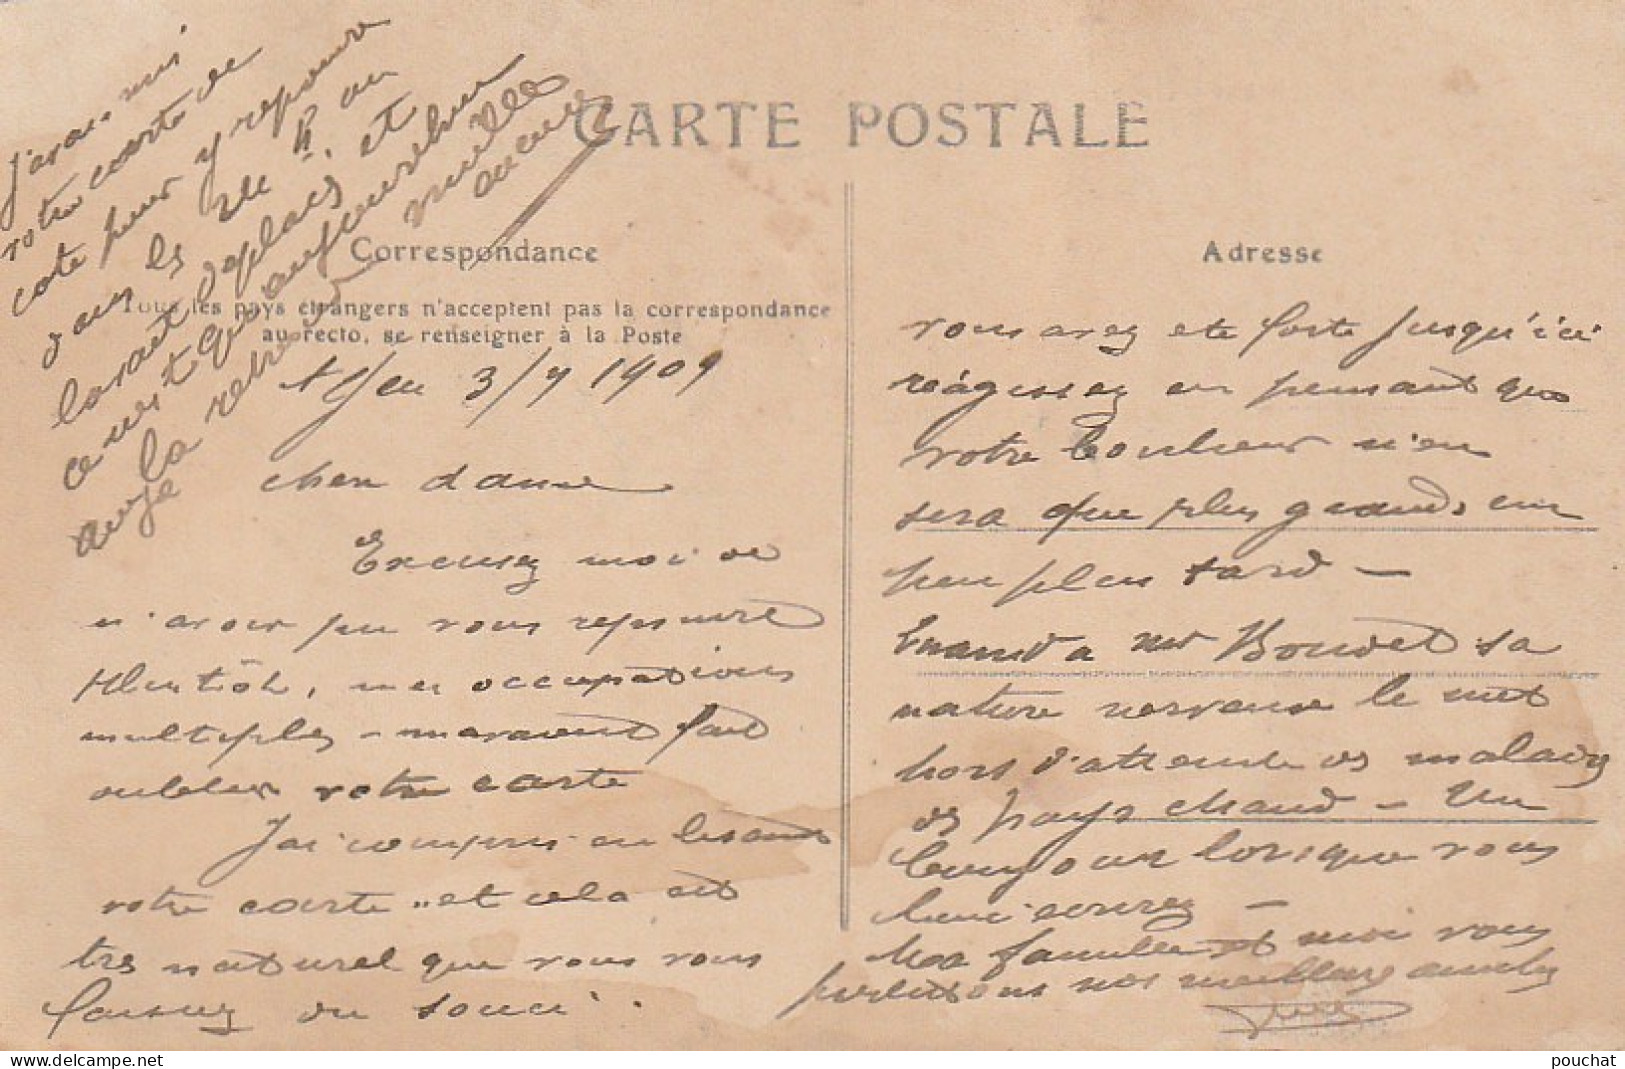 J'avais mis
votre carte de
cote pour y repondre
dans les
l'avait deplacé et
ce n'est qu'aujourd'hui
que je la retrouve
mille
CARTE POSTALE
Correspondance
Tous les pays étrangers n'acceptent pas la correspondance
au recto, se renseigner à la Poste
3/7 1909
chere dame
Excusez moi de
n'avoir pu vous repondre
plutôt, mes occupations
multiples m'avaient fait
oublier votre carte
J'ai compris en lisant
votre carte et cela est
tres naturel que vous vous
fassiez du souci.
Adresse
vous avez ete forte jusqu'ici
réagissez en pensant que
votre bonheur n'en
sera que plus grand un
peu plus tard —
Quand a Mr Bouvet sa
nature nerveuse le met
hors d'atteinte des maladies
des pays chaud — Un
bonjour lorsque vous
lui ecrirez —
Ma famille et moi vous
présentons nos meilleures amitiés
pouchat